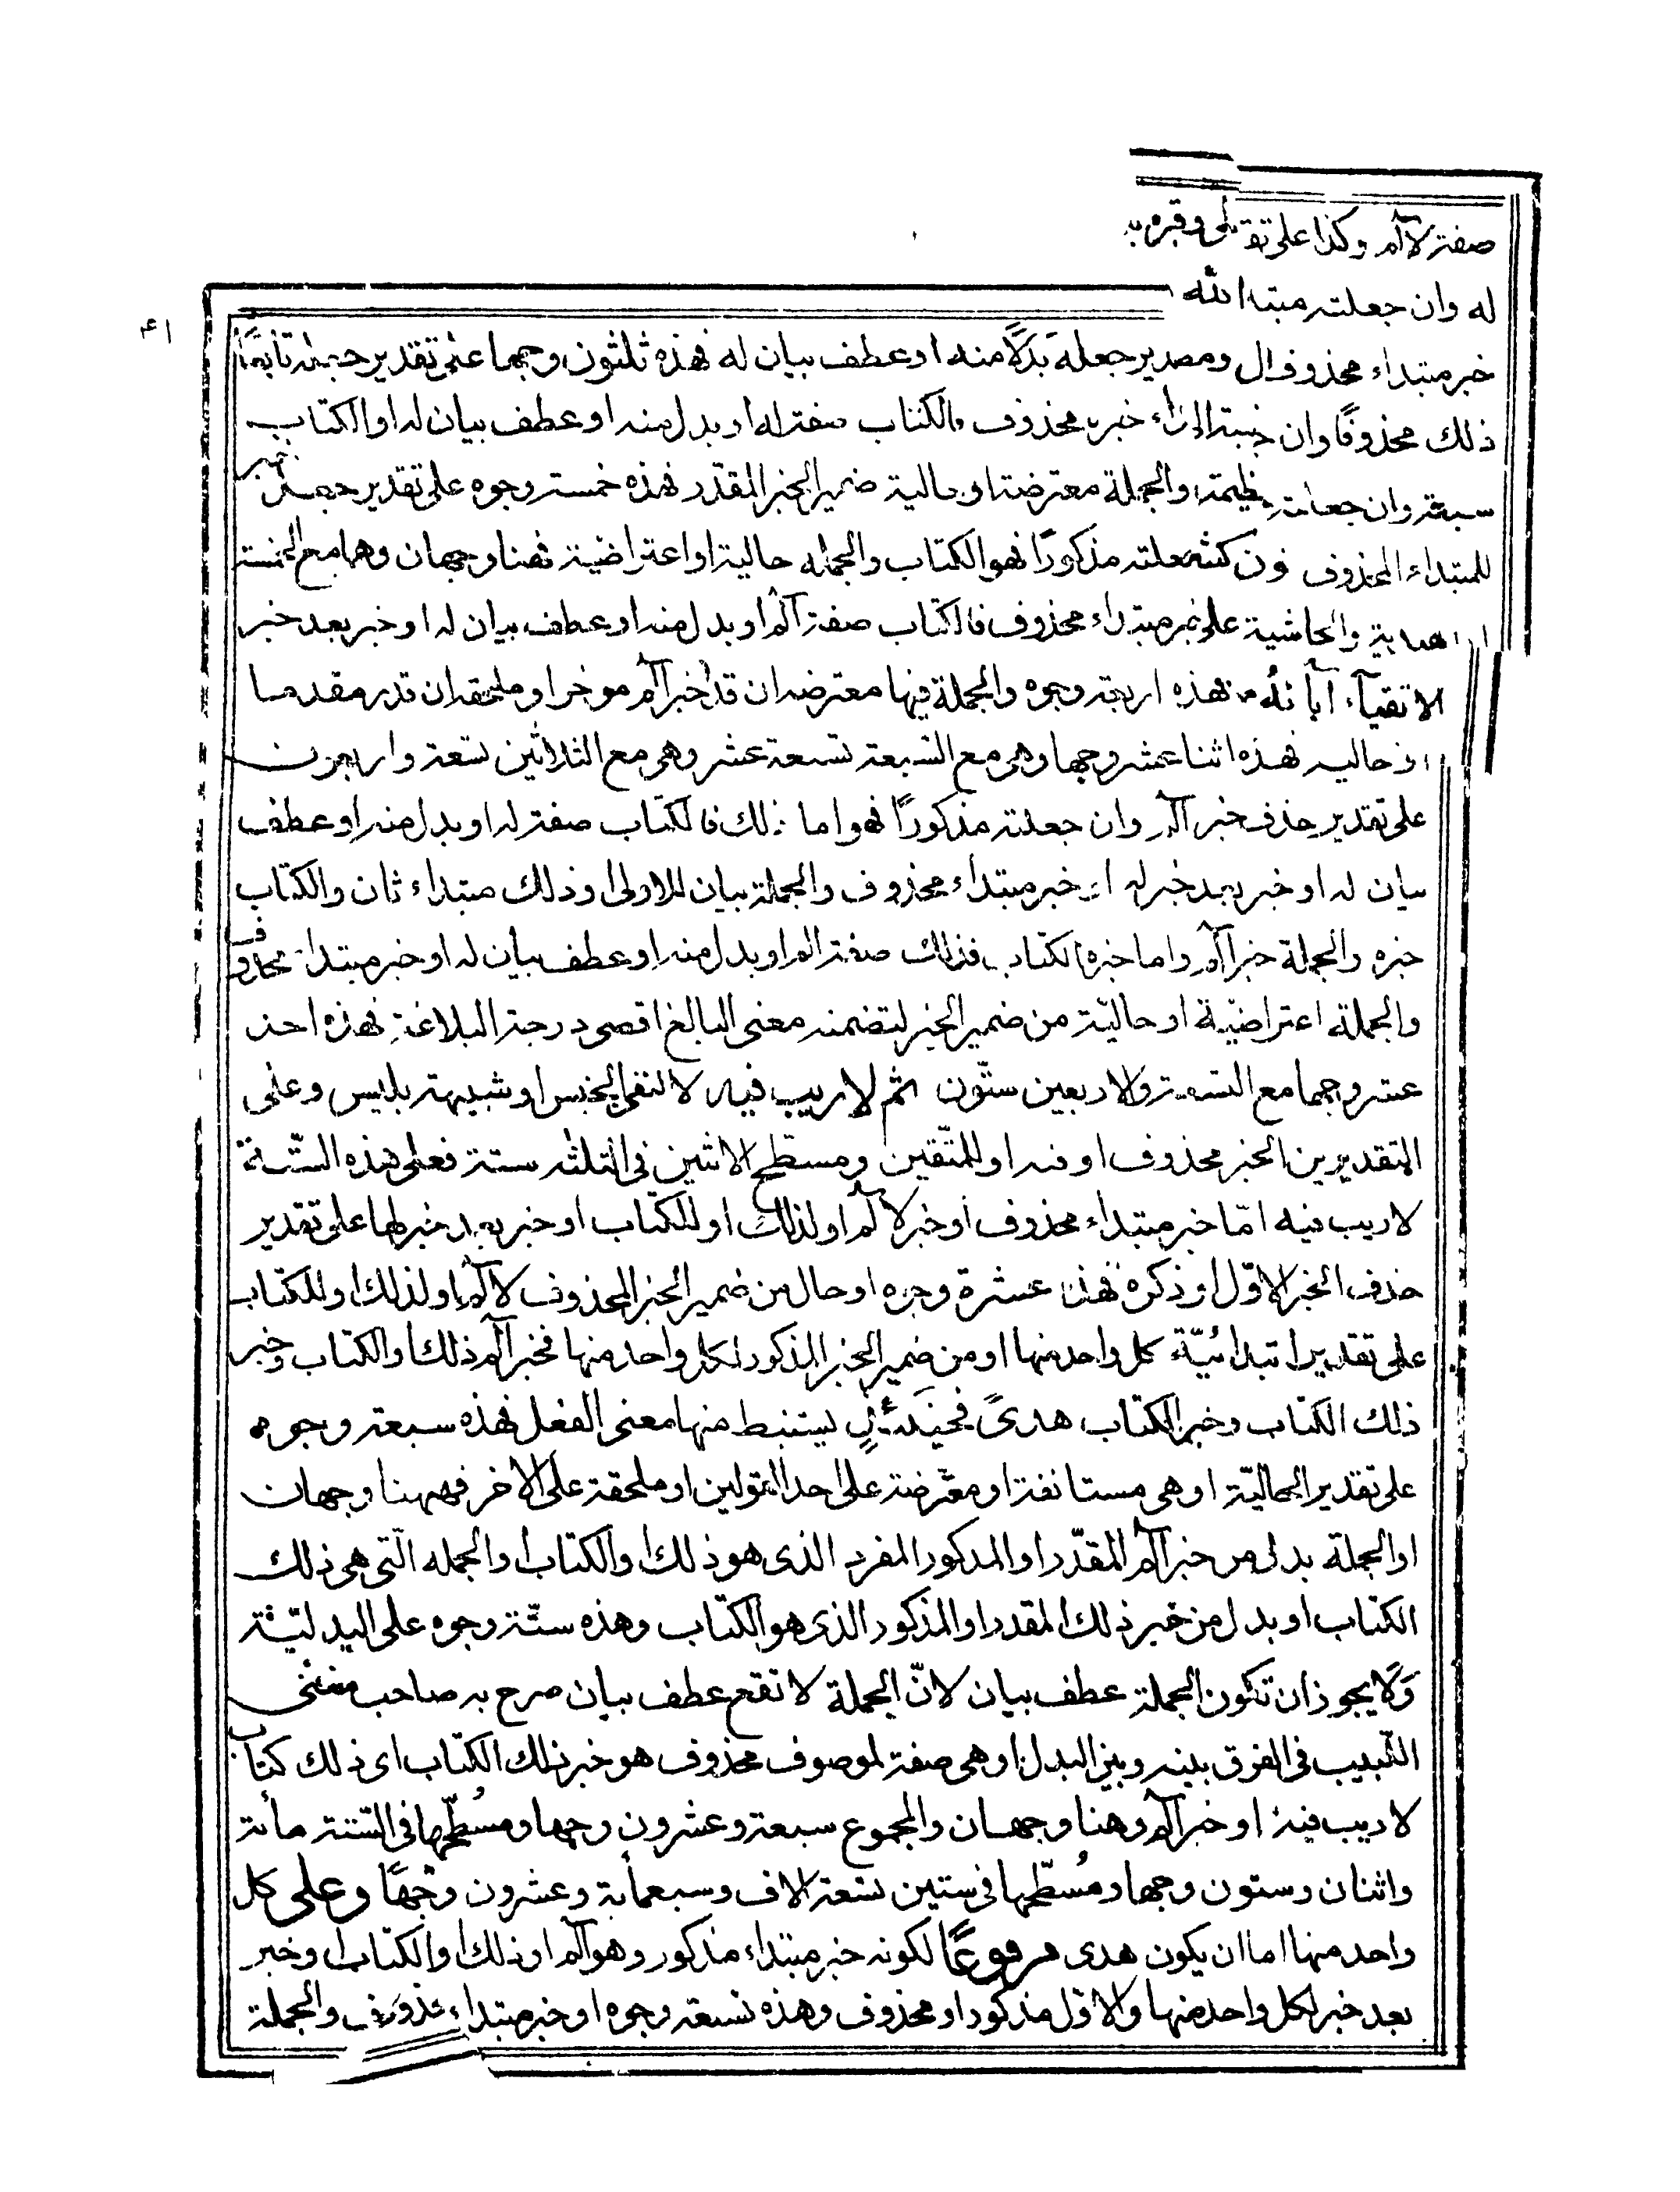 صفة لآلم وكذا على تق
له وان جعلته مبتدا
خبر مبتداء محذوف ال جعله بدلًا منه او عطف بيان له فهذه ثلثون وجها على تقدير
ذلك محذوفًا وان خبره محذوف فالكتاب صفة له او بدل منه او عطف بيان له او الكتاب خبر
وان والجملة معترضة او حالية ضمير الخبر المقدّر فهذه خمسة وجوه على تقدير
للمبتداء المحذوف مذكورًا فهو الكتاب والجمله حالية او اعتراضية فهنا وجهان وهما مع الخمسة
على مبتداء محذوف فالكتاب صفة آلم او بدل منه او عطف بيان له او خبر بعد خبر
فهذه اربعة وجوه والجملة فيها معترضه ان قدّر خبر آلم موخرا او ان قدر مقدما
او حاليه فهذه اثنا عشر وجها وهى مع السّبعة تسعة عشر وهى مع الثلاثين تسعة واربعون
على تقدير حذف خبر آلم وان جعلته مذكورًا فهو اما ذلك فالكتاب صفة له او بدل منه او عطف
بيان له او خبر بعد خبر له او خبر مبتداء محذوف والجملة بيان للاولى او ذلك مبتداء ثان والكتاب
خبره والجملة خبر آلم واما خبره الكتاب فذلك صفة الم او بدل منه او عطف بيان له او خبر مبتداء محذوف
والجملة اعتراضيّة او حاليّة من ضمير الخبر لتضمنه معنى البالغ اقصى درجة البلاغة فهذه احد
عشر وجها مع التسعة والاربعين ستّون ثم لا ريب فيه لا لنفى الجنس او شبيهة بليس وعلى
التقديرين الخبر محذوف او فيه او للمتّقين ومسطّح الاثنين فى الثلثه ستة فعلى هذه السّتة
لا ريب فيه امّا خبر مبتداء محذوف او خبر لآلم او لذلك او للكتاب او خبر بعد خبر لها على تقدير
حذف الخبر الاوّل او ذكره فهذه عشرة وجوه او حال من ضمير الخبر المحذوف لآلم او لذلك او للكتاب
على تقدير ابتدائيّة كل واحد منها او من ضمير الخبر المذكور لكل واحد منها فخبر آلم ذلك او الكتاب وخبر
ذلك الكتاب وخبر الكتاب هدىً فحينئذٍ يستنبط منها معنى الفعل فهذه سبعة وجوه
على تقدير الحاليّة او هى مستانفة او معترضة على احد القولين او ملحقة على الاخر فههنا وجهان
او الجملة بدل من خبر آلم المقدّر او المذكور المفرد الذى هو ذلك او الكتاب او الجمله الّتى هى ذلك
الكتاب او بدل من خبر ذلك المقدر او المذكور الذى هو الكتاب وهذه ستّة وجوه على البدليّة
ولا يجوز ان تكون الجملة عطف بيان لانّ الجملة لا تقع عطف بيان صرح به صاحب مغنى
اللّبيب فى الفرق بينه وبين البدل او هى صفة لموصوف محذوف هو خبر ذلك الكتاب اى ذلك كتاب
لا ريب فيه او خبر آلم وهنا وجهان والمجموع سبعة وعشرون وجها ومسُطّحها فى السّتة مأة
واثنان وستون وجها ومُسطّحها فى ستين تسعة الاف وسبعمأة وعشرون وجهًا وعلى كل
واحد منها اما ان يكون هدى مرفوعًا لكونه خبر مبتداء مذكور وهو آلم او ذلك او الكتاب او خبر
بعد خبر لكل واحد منها والاوّل مذكور او محذوف وهذه تسعة وجوه او خبر مبتداء محذوف والجملة